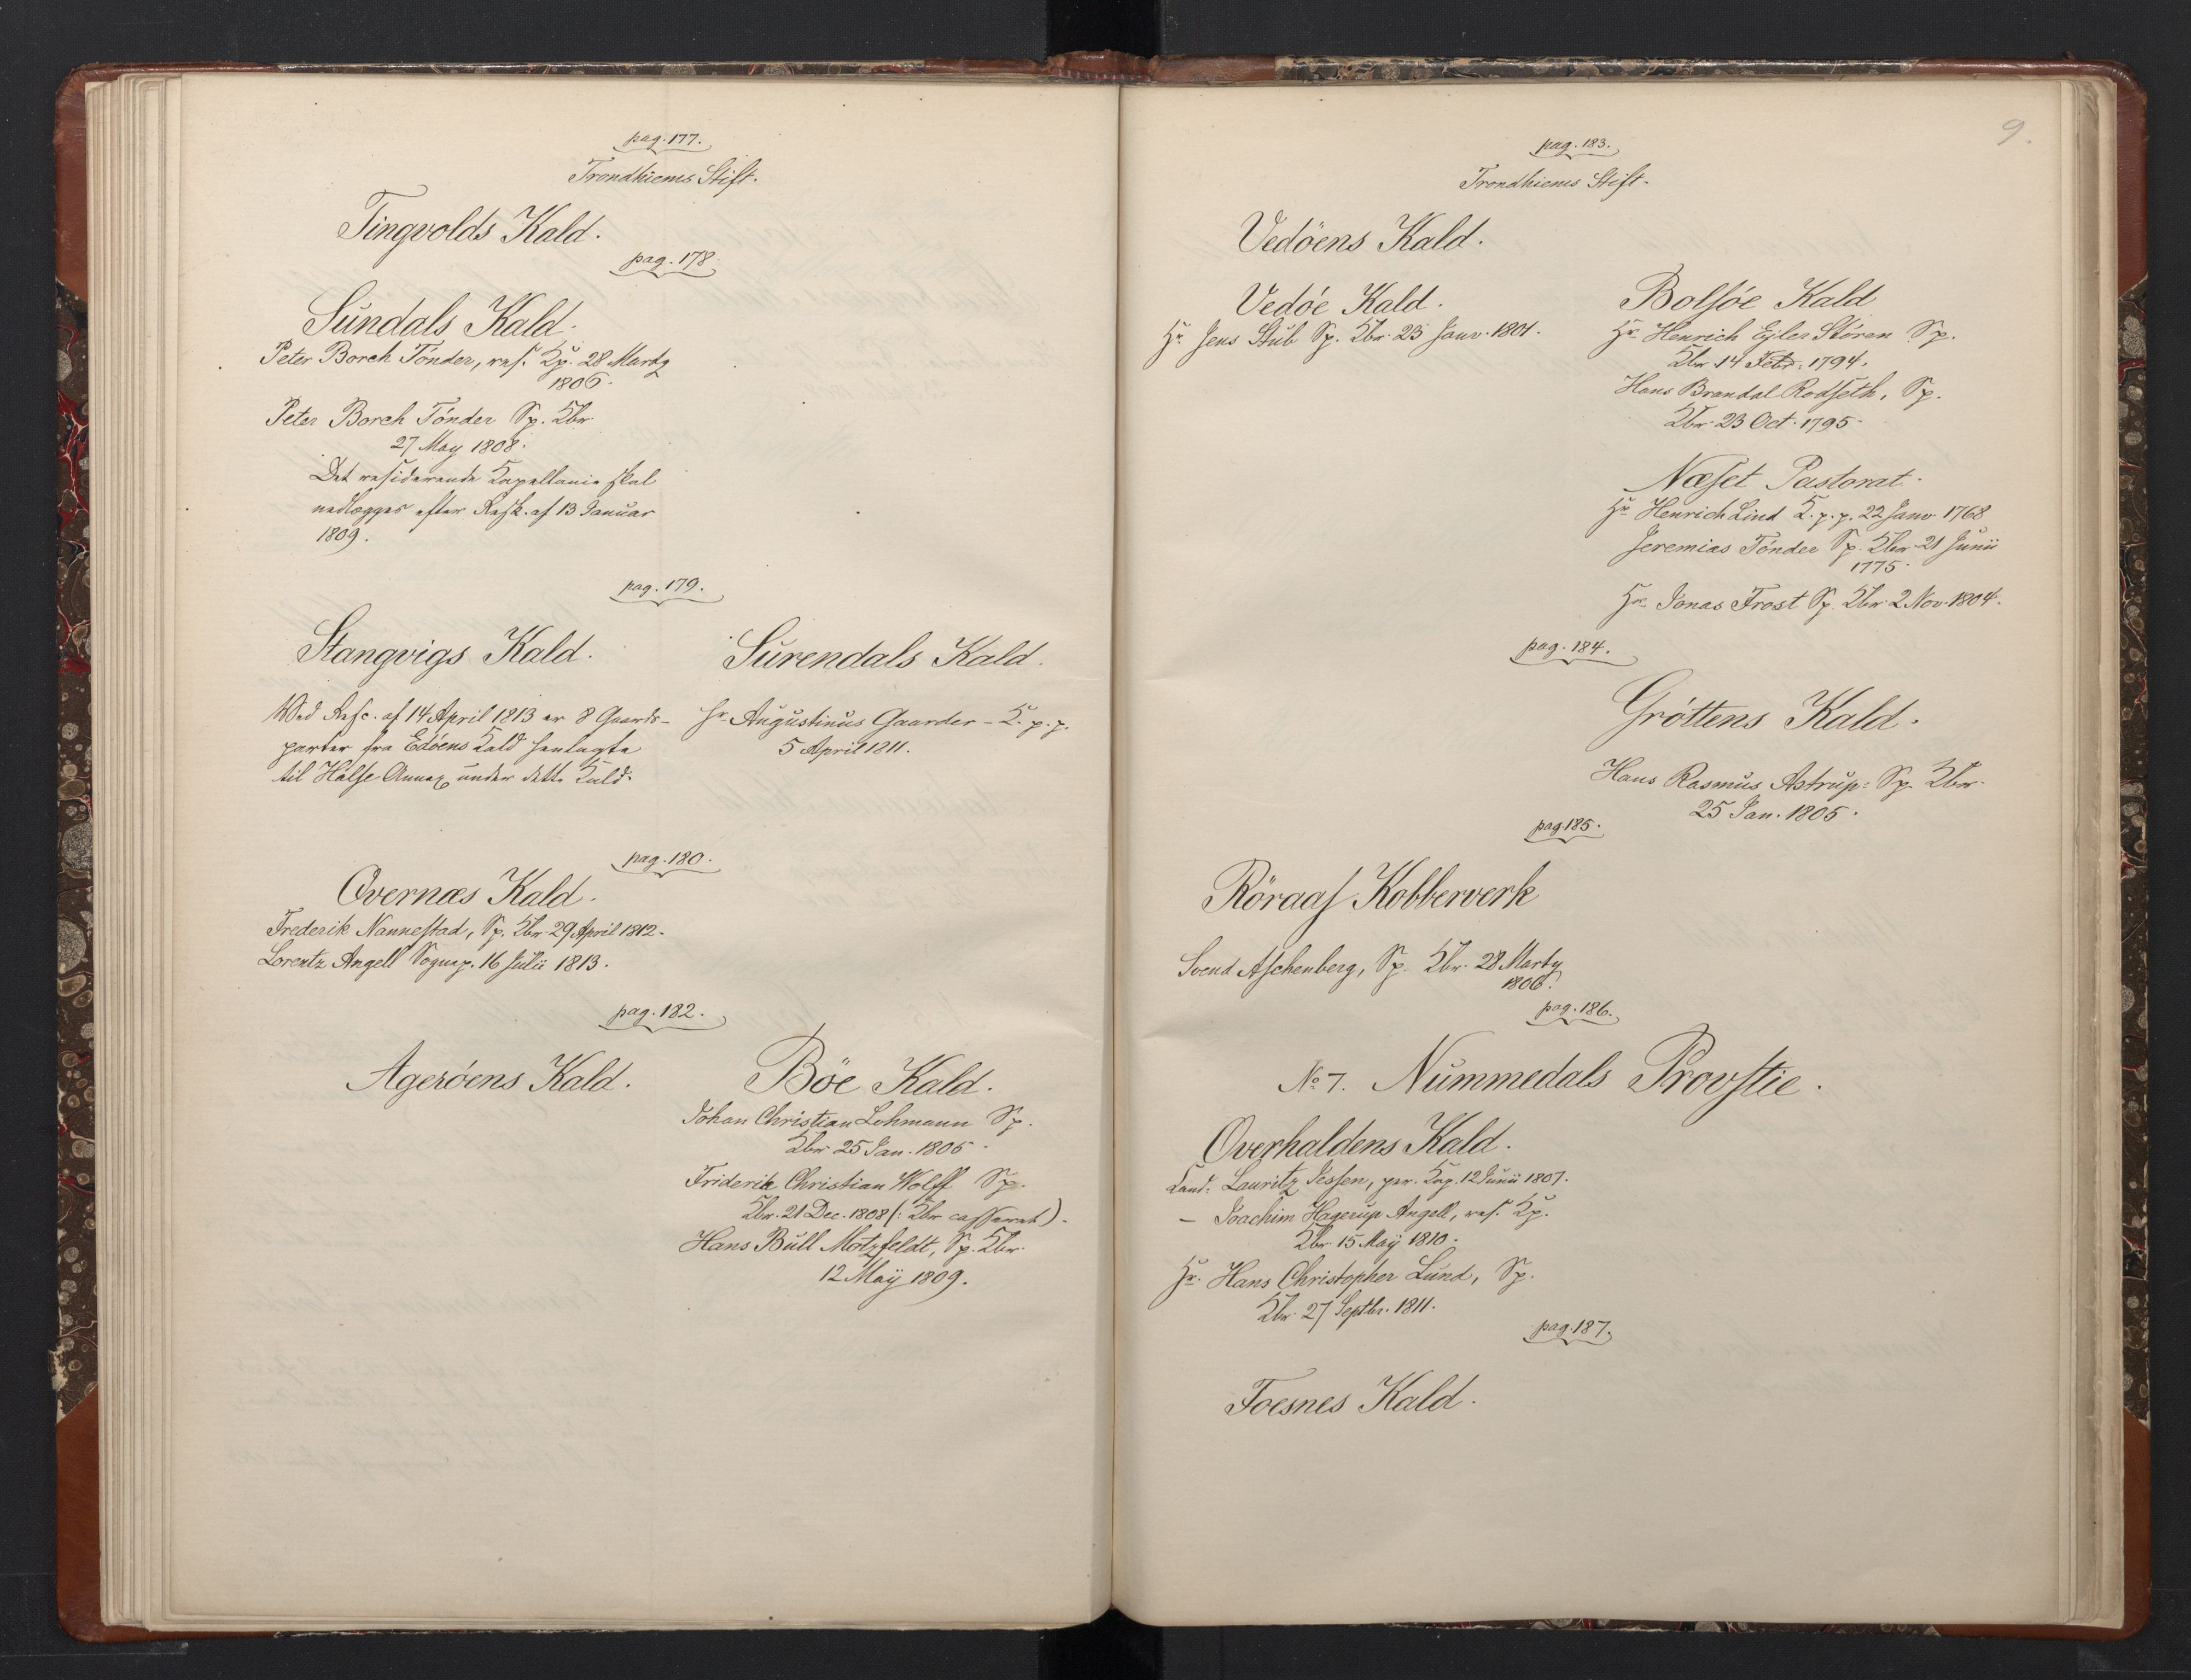 pag. 177.
Trondhiems Stift.
Tingvolds Kald.
pag. 178.
Sundals Kald.
Peter Borch Tönder, res. Kp. 28 Marty
1806.
Peter Borch Tönder Sp. Kbr.
27 May 1808.
Det residerende Kapellanie skal
nedlægges efter Resk. af 13 Januar
1809.
pag. 179.
Stangvigs Kald.
Ved Resc. af 14 April 1813 er 8 Gaards-
parter fra Edöens Kald henlagte
til Halse Annex under dette Kald.
Surendals Kald.
Hr Augustinus Gaarder - K. p. p.
5 April 1811.
pag. 180.
Qvernæs Kald.
Frederik Nannestad, Sp. Kbr 29 April 1812.
Lorentz Angell Sognep. 16 Julii 1813.
pag. 182.
Ageröens Kald.
Böe Kald.
Johan Christian Lohmann Sp.
Kbr 25 Jan. 1805.
Friderik Christian Wolff Sp.
Kbr. 21 Dec. 1808 (: Kbr casserert).
Hans Bull Motzfeldt, Sp. Kbr.
12 Maÿ 1809.
9.
pag. 183.
Trondhiems Stift.
Vedöens Kald.
Vedöe Kald.
Hr Jens Stub Sp. Kbr 23 Janv. 1801.
Bolsöe Kald
Hr Henrich Ejler Stören Sp.
Kbr 14 Febr. 1794.
Hans Brandal Rodseth, Sp.
Kbr 23 Oct. 1795.
Næset Pastorat.
Hr Henrich Lind K. p. p. 22 Janv 1768
Jeremias Tönder Sp. Kbr 21 Junii
1775.
Hr Jonas Frost Sp. Kbr 2 Nov. 1804.
pag. 184.
Gröttens Kald.
Hans Rasmus Astrup: Sp. Kbr.
25 Jan. 1805.
pag. 185.
Röraas Kobberverk
Svend Aschenberg, Sp. Kbr. 28 Marty
1806.
pag. 186.
No 7. Nummedals Provstie.
Overhaldens Kald.
Cand: Lauritz Jessen, per. Kap. 12 Junii 1807.
- Joachim Hagerup Angell, res. Kp.
Kbr. 15 Maÿ 1810.
Hr. Hans Christopher Lund, Sp.
Kbr. 27 Septbr. 1811.
pag. 187.
Foesnes Kald.